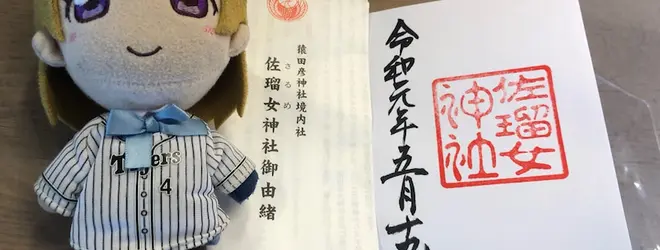 Tigers
4
猿田彦神社境内社
さるめ
佐瑠女神社御由緒
佐瑠女
神社
令和元年五月十